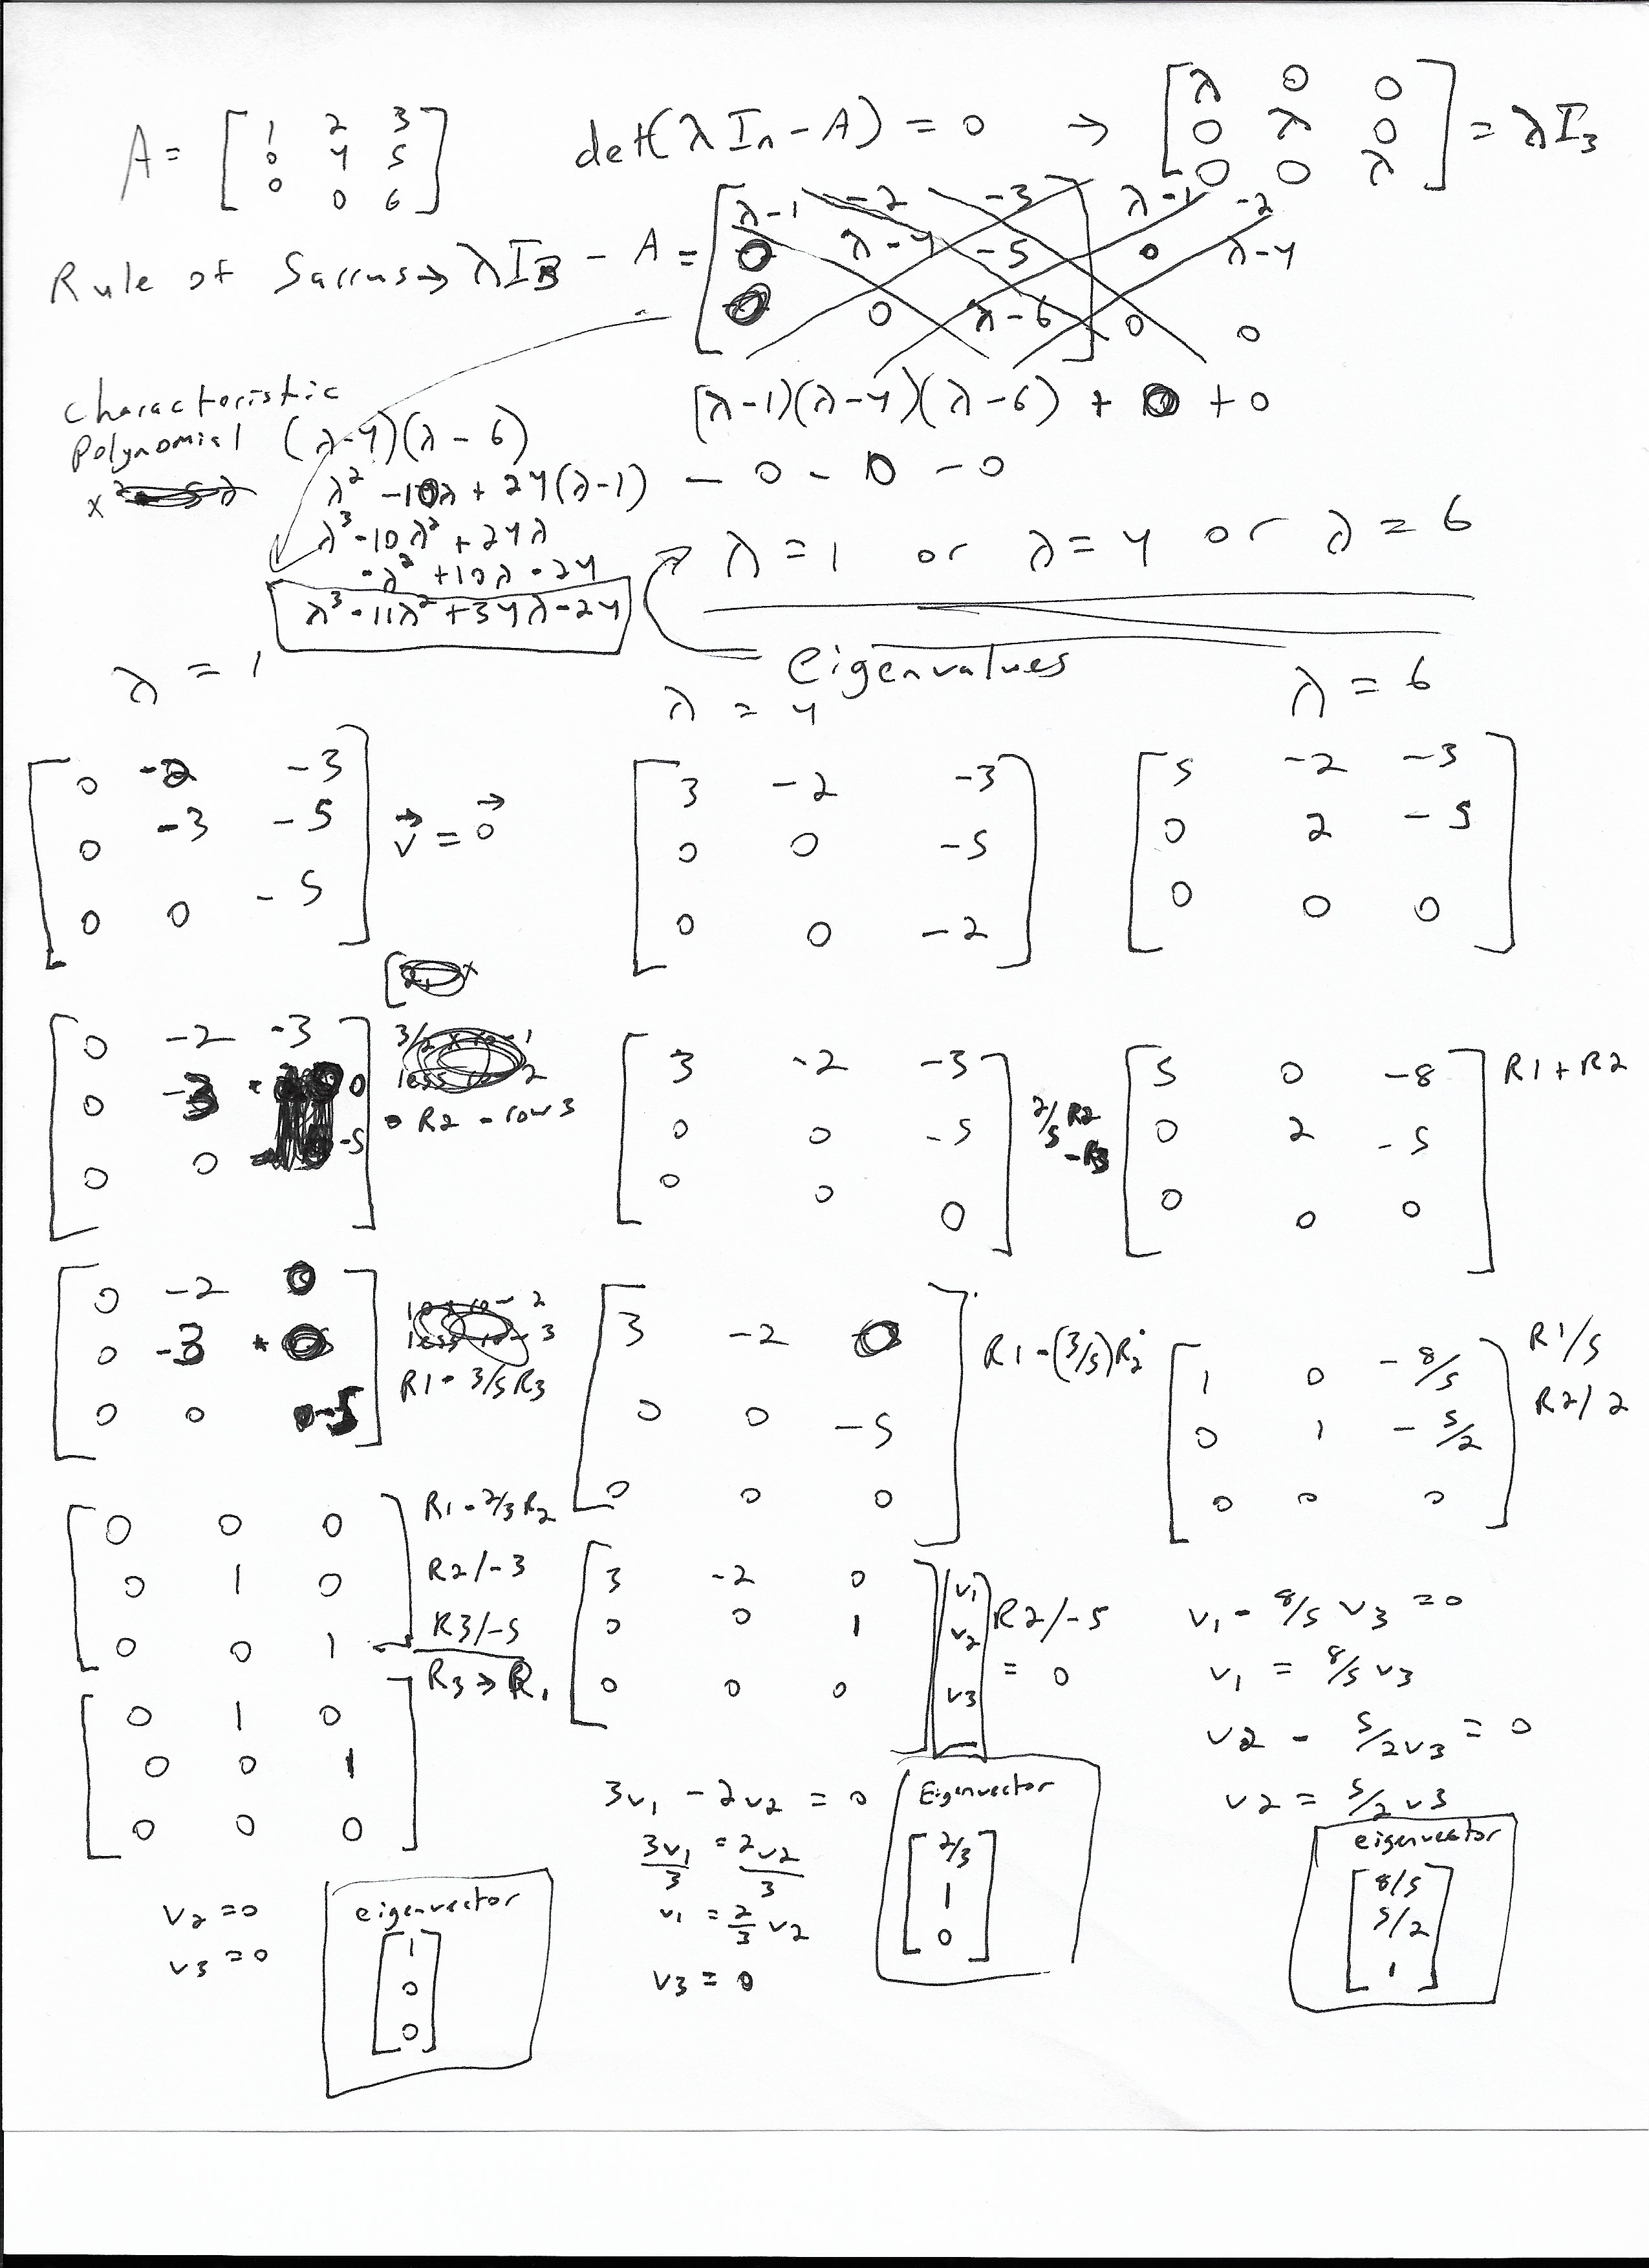 A = [ 1 2 3
0 4 5
0 0 6 ]
det(λIn - A) = 0 →
[ λ 0 0
0 λ 0
0 0 λ ] = λI3
Rule of Sarrus → λI3 - A =
[ λ-1 -2 -3 ] λ-1 -2
0 λ-4 -5 0 λ-4
0 0 λ-6 0 0
(λ-1)(λ-4)(λ-6) + 0 + 0
- 0 - 0 - 0
Characteristic
Polynomial (λ-4)(λ-6)
λ² -10λ + 24(λ-1)
λ³-10λ² + 24λ
-λ² +10λ -24
λ³-11λ²+34λ-24
λ = 1 or λ = 4 or λ = 6
eigenvalues
λ = 1
[ 0 -2 -3
0 -3 -5
0 0 -5 ] v = 0
[ 0 -2 -3
0 -3 0
0 0 -5 ]
R2 - row 3
[ 0 -2 0
0 -3 0
0 0 -5 ]
R1 - 3/5 R3
[ 0 0 0
0 1 0
0 0 1 ]
R1 - 2/3 R2
R2/-3
R3/-5
R3 → R1
[ 0 1 0
0 0 1
0 0 0 ]
v2 = 0
v3 = 0
eigenvector
[ 1
0
0 ]
λ = 4
[ 3 -2 -3
0 0 -5
0 0 -2 ]
[ 3 -2 -3
0 0 -5
0 0 0 ]
2/5 R2
- R3
[ 3 -2 0
0 0 -5
0 0 0 ]
R1 - (3/5)R2
[ 3 -2 0 ] [ v1
0 0 1 v2
0 0 0 v3 ]
R2/-5
= 0
3v1 - 2v2 = 0
3v1/3 = 2v2/3
v1 = 2/3 v2
v3 = 0
Eigenvector
[ 2/3
1
0 ]
λ = 6
[ 5 -2 -3
0 2 -5
0 0 0 ]
[ 5 0 -8
0 2 -5
0 0 0 ]
R1 + R2
[ 1 0 -8/5
0 1 -5/2
0 0 0 ]
R1/5
R2/2
v1 - 8/5 v3 = 0
v1 = 8/5 v3
v2 - 5/2 v3 = 0
v2 = 5/2 v3
eigenvector
[ 8/5
5/2
1 ]